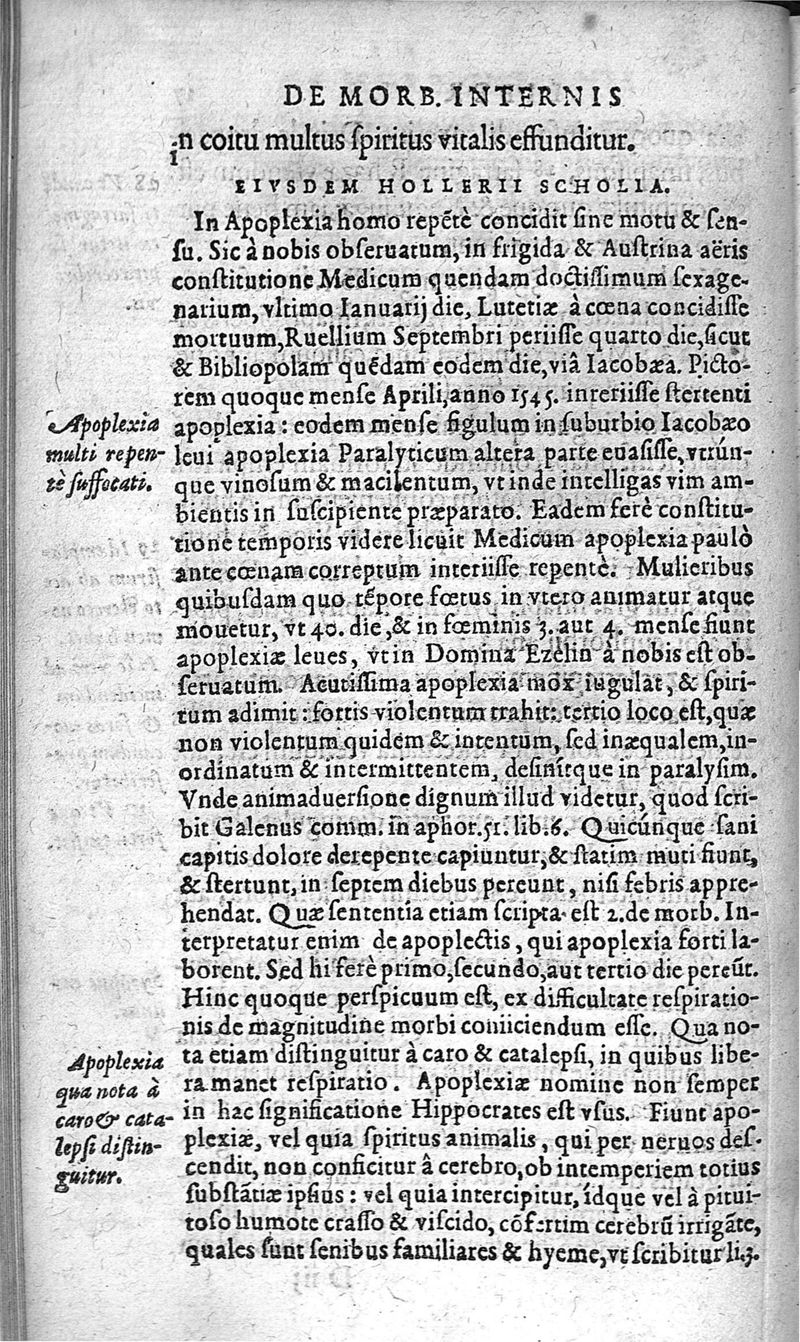 DE MORB. INTERNIS
in coitu multus ſpiritus vitalis effunditur.
EIVSDEM HOLLERII SCHOLIA.
In Apoplexia homo repẽtè concidit ſine motu & ſen-
ſu. Sic à nobis obſeruatum, in frigida & Auſtrina aëris
conſtitutione Medicum quendam doctiſſimum ſexage-
narium, vltimo Ianuarij die, Lutetiæ à cœna concidiſſe
mortuum, Ruellium Septembri periiſſe quarto die, ſicut
& Bibliopolam quẽdam eodem die, viâ Iacobæa. Picto-
rem quoque menſe Aprili, anno 1545. interiiſſe ſtertenti
apoplexia: eodem menſe figulum in ſuburbio Iacobæo
leui apoplexia Paralyticum altera parte euaſiſſe, vtrún-
que vinoſum & macilentum, vt inde intelligas vim am-
bientis in ſuſcipiente præparato. Eadem ferè conſtitu-
tione temporis videre licuit Medicum apoplexia paulò
ante cœnam correptum interiiſſe repentè. Mulieribus
quibuſdam quo tẽpore fœtus in vtero animatur atque
mouetur, vt 40. die, & in fœminis 3. aut 4. menſe fiunt
apoplexiæ leues, vt in Domina Ezelin à nobis eſt ob-
ſeruatum. Acutiſſima apoplexia mox iugulat, & ſpiri-
tum adimit: fortis violentum trahit: tertio loco eſt, quæ
non violentum quidem & intentum, ſed inæqualem, in-
ordinatum & intermittentem, deſinitque in paralyſim.
Vnde animaduerſione dignum illud videtur, quod ſcri-
bit Galenus comm. in aphor. 51. lib. 6. Quicúnque ſani
capitis dolore derepente capiuntur, & ſtatim muti fiunt,
& ſtertunt, in ſeptem diebus pereunt, niſi febris appre-
hendat. Quæ ſententia etiam ſcripta eſt 2. de morb. In-
terpretatur enim de apoplectis, qui apoplexia forti la-
borent. Sed hi ferè primo, ſecundo, aut tertio die pereũt.
Hinc quoque perſpicuum eſt, ex difficultate reſpiratio-
nis de magnitudine morbi coniiciendum eſſe. Qua no-
ta etiam diſtinguitur à caro & catalepſi, in quibus libe-
ra manet reſpiratio. Apoplexiæ nomine non ſemper
in hac ſignificatione Hippocrates eſt vſus. Fiunt apo-
plexiæ, vel quia ſpiritus animalis, qui per neruos deſ-
cendit, non conficitur à cerebro, ob intemperiem totius
ſubſtãtiæ ipſius: vel quia intercipitur, idque vel à pitui-
toſo humore craſſo & viſcido, cõfertim cerebrũ irrigãte,
quales ſunt ſenibus familiares & hyeme, vt ſcribitur li. 3.
Apoplexia
multi repen-
tè ſuffocati.
Apoplexia
qua nota à
caro & cata-
lepſi diſtin-
guitur.